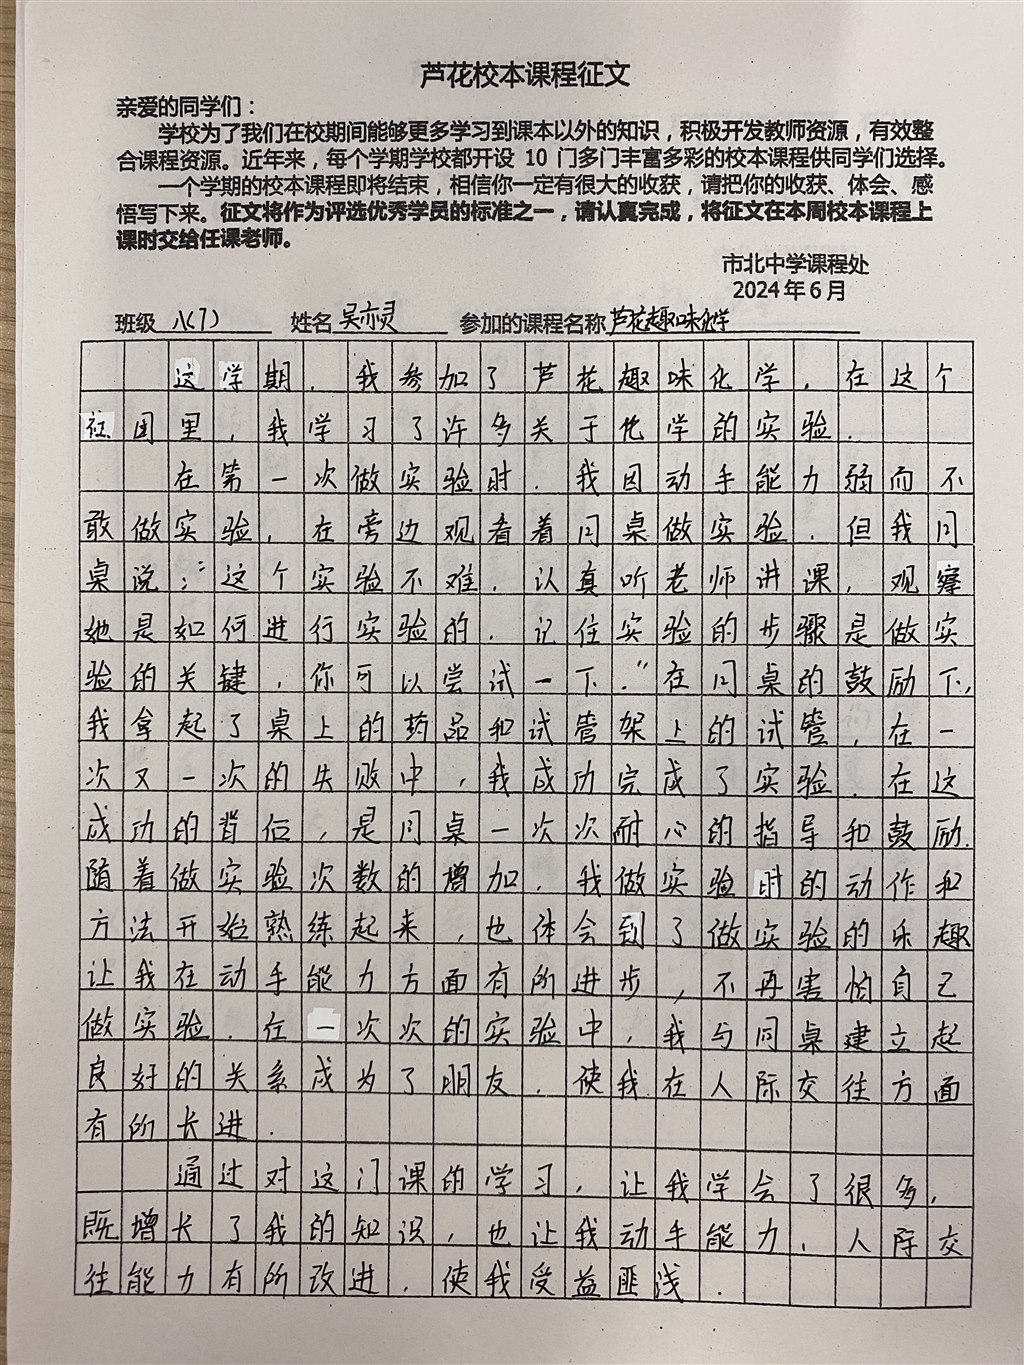 芦花校本课程征文
亲爱的同学们：
学校为了我们在校期间能够更多学习到课本以外的知识，积极开发教师资源，有效整
合课程资源。近年来，每个学期学校都开设 10 门多门丰富多彩的校本课程供同学们选择。
一个学期的校本课程即将结束，相信你一定有很大的收获，请把你的收获、体会、感
悟写下来。征文将作为评选优秀学员的标准之一，请认真完成，将征文在本周校本课程上
课时交给任课老师。
市北中学课程处
2024 年 6 月
班级 八(7) 姓名 吴亦灵 参加的课程名称 芦花趣味化学
这学期，我参加了芦花趣味化学，在这个
社团里，我学习了许多关于化学的实验．
在第一次做实验时．我因动手能力弱而不
敢做实验，在旁边观看着同桌做实验．但我同
桌说：“这个实验不难．认真听老师讲课，观察
她是如何进行实验的．记住实验的步骤是做实
验的关键，你可以尝试一下．”在同桌的鼓励下，
我拿起了桌上的药品和试管架上的试管，在一
次又一次的失败中，我成功完成了实验．在这
成功的背后，是同桌一次次耐心的指导和鼓励．
随着做实验次数的增加．我做实验时的动作和
方法开始熟练起来，也体会到了做实验的乐趣
让我在动手能力方面有所进步，不再害怕自己
做实验．在一次次的实验中，我与同桌建立起
良好的关系成为了朋友．使我在人际交往方面
有所长进．
通过对这门课的学习，让我学会了很多，
既增长了我的知识，也让我动手能力、人际交
往能力有所改进．使我受益匪浅．